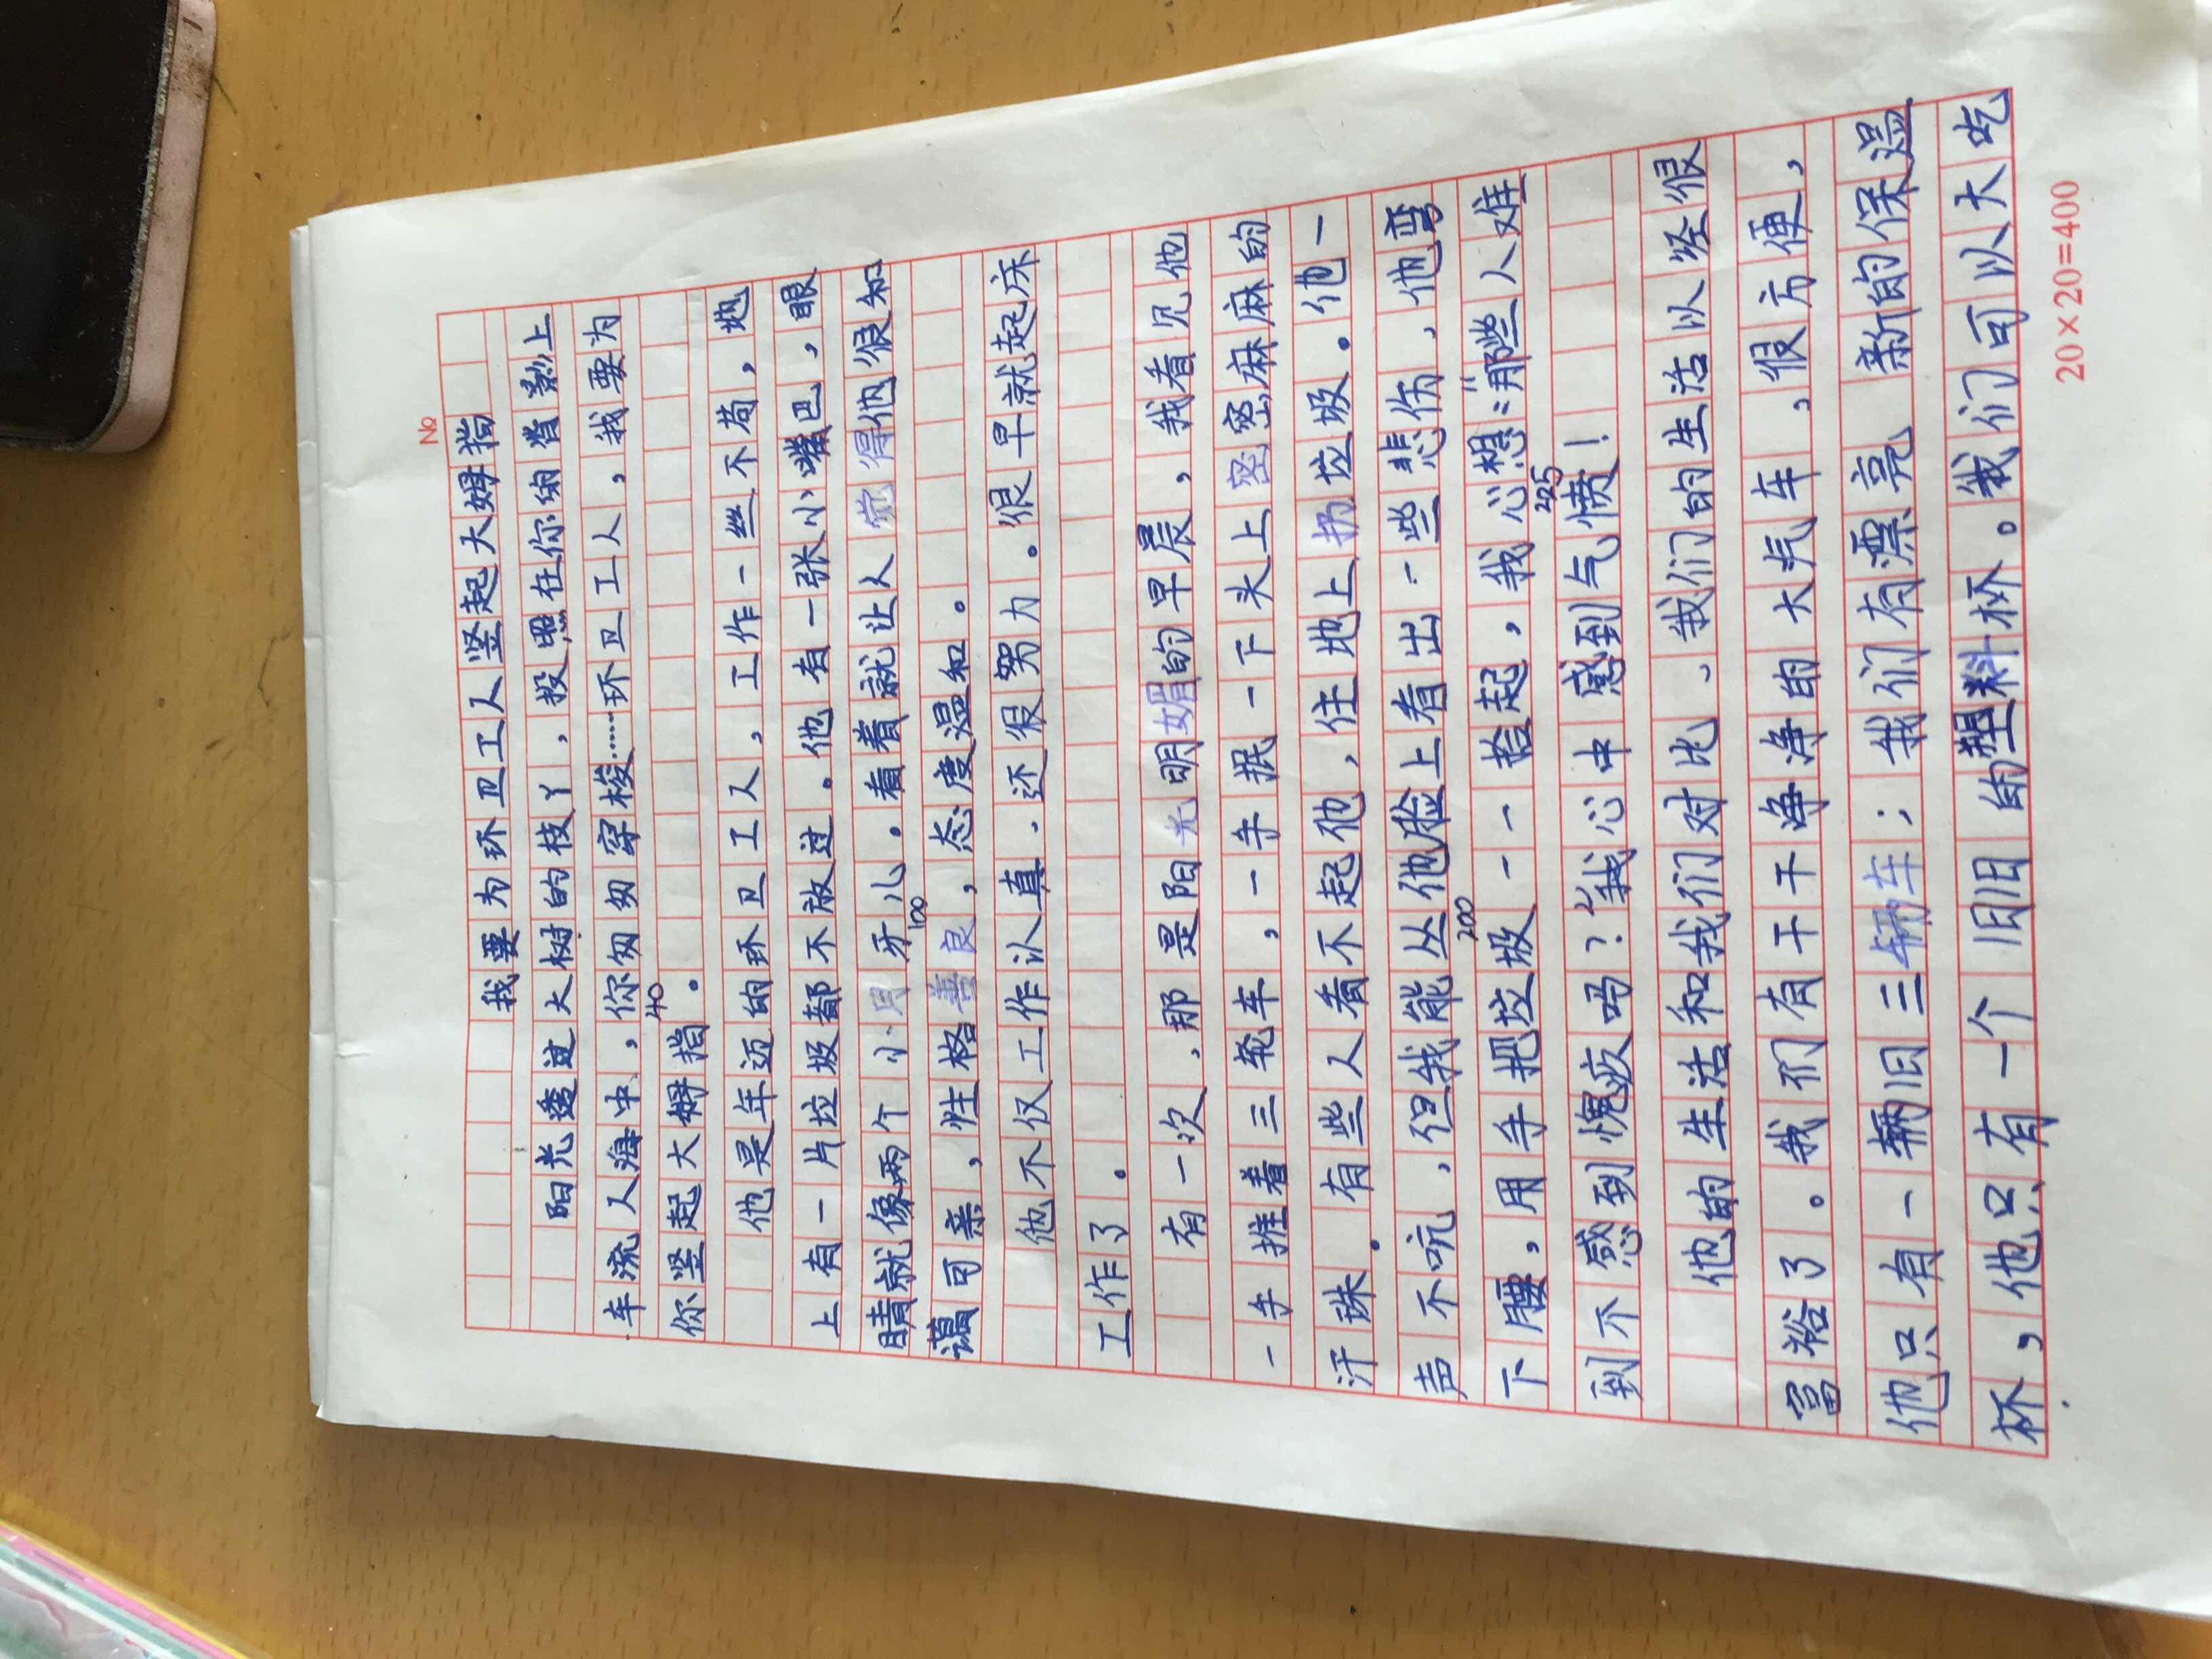 No
我要为环卫工人竖起大姆指
阳光透过大树的枝丫,投照在你的背影上
车流人海中,你匆匆穿梭……环卫工人,我要为
40
你竖起大姆指。
他是年迈的环卫工人,工作一丝不苟,地
上有一片垃圾都不放过。他有一张小嘴巴,眼
睛就像两个小月牙儿。看着就让人觉得他很和
100
蔼可亲,性格善良,态度温和。
他不仅工作认真,还很努力。很早就起床
工作了。
有一次,那是阳光明媚的早晨,我看见他
一手推着三轮车,一手抿一下头上密密麻麻的
汗珠。有些人看不起他,往地上扔垃圾。他一
声不吭,但我能从他脸上看出一些悲伤,他弯
200
下腰,用手把垃圾一一拾起,我心想:“那些人难
225
到不感到愧疚吗?”我心中感到气愤!
他的生活和我们对比,我们的生活以经很
富裕了。我们有干干净净的大汽车,很方便,
他只有一辆旧三轮车;我们有漂亮新的保温
杯,他只有一个旧旧的塑料杯。我们可以大吃
20×20=400